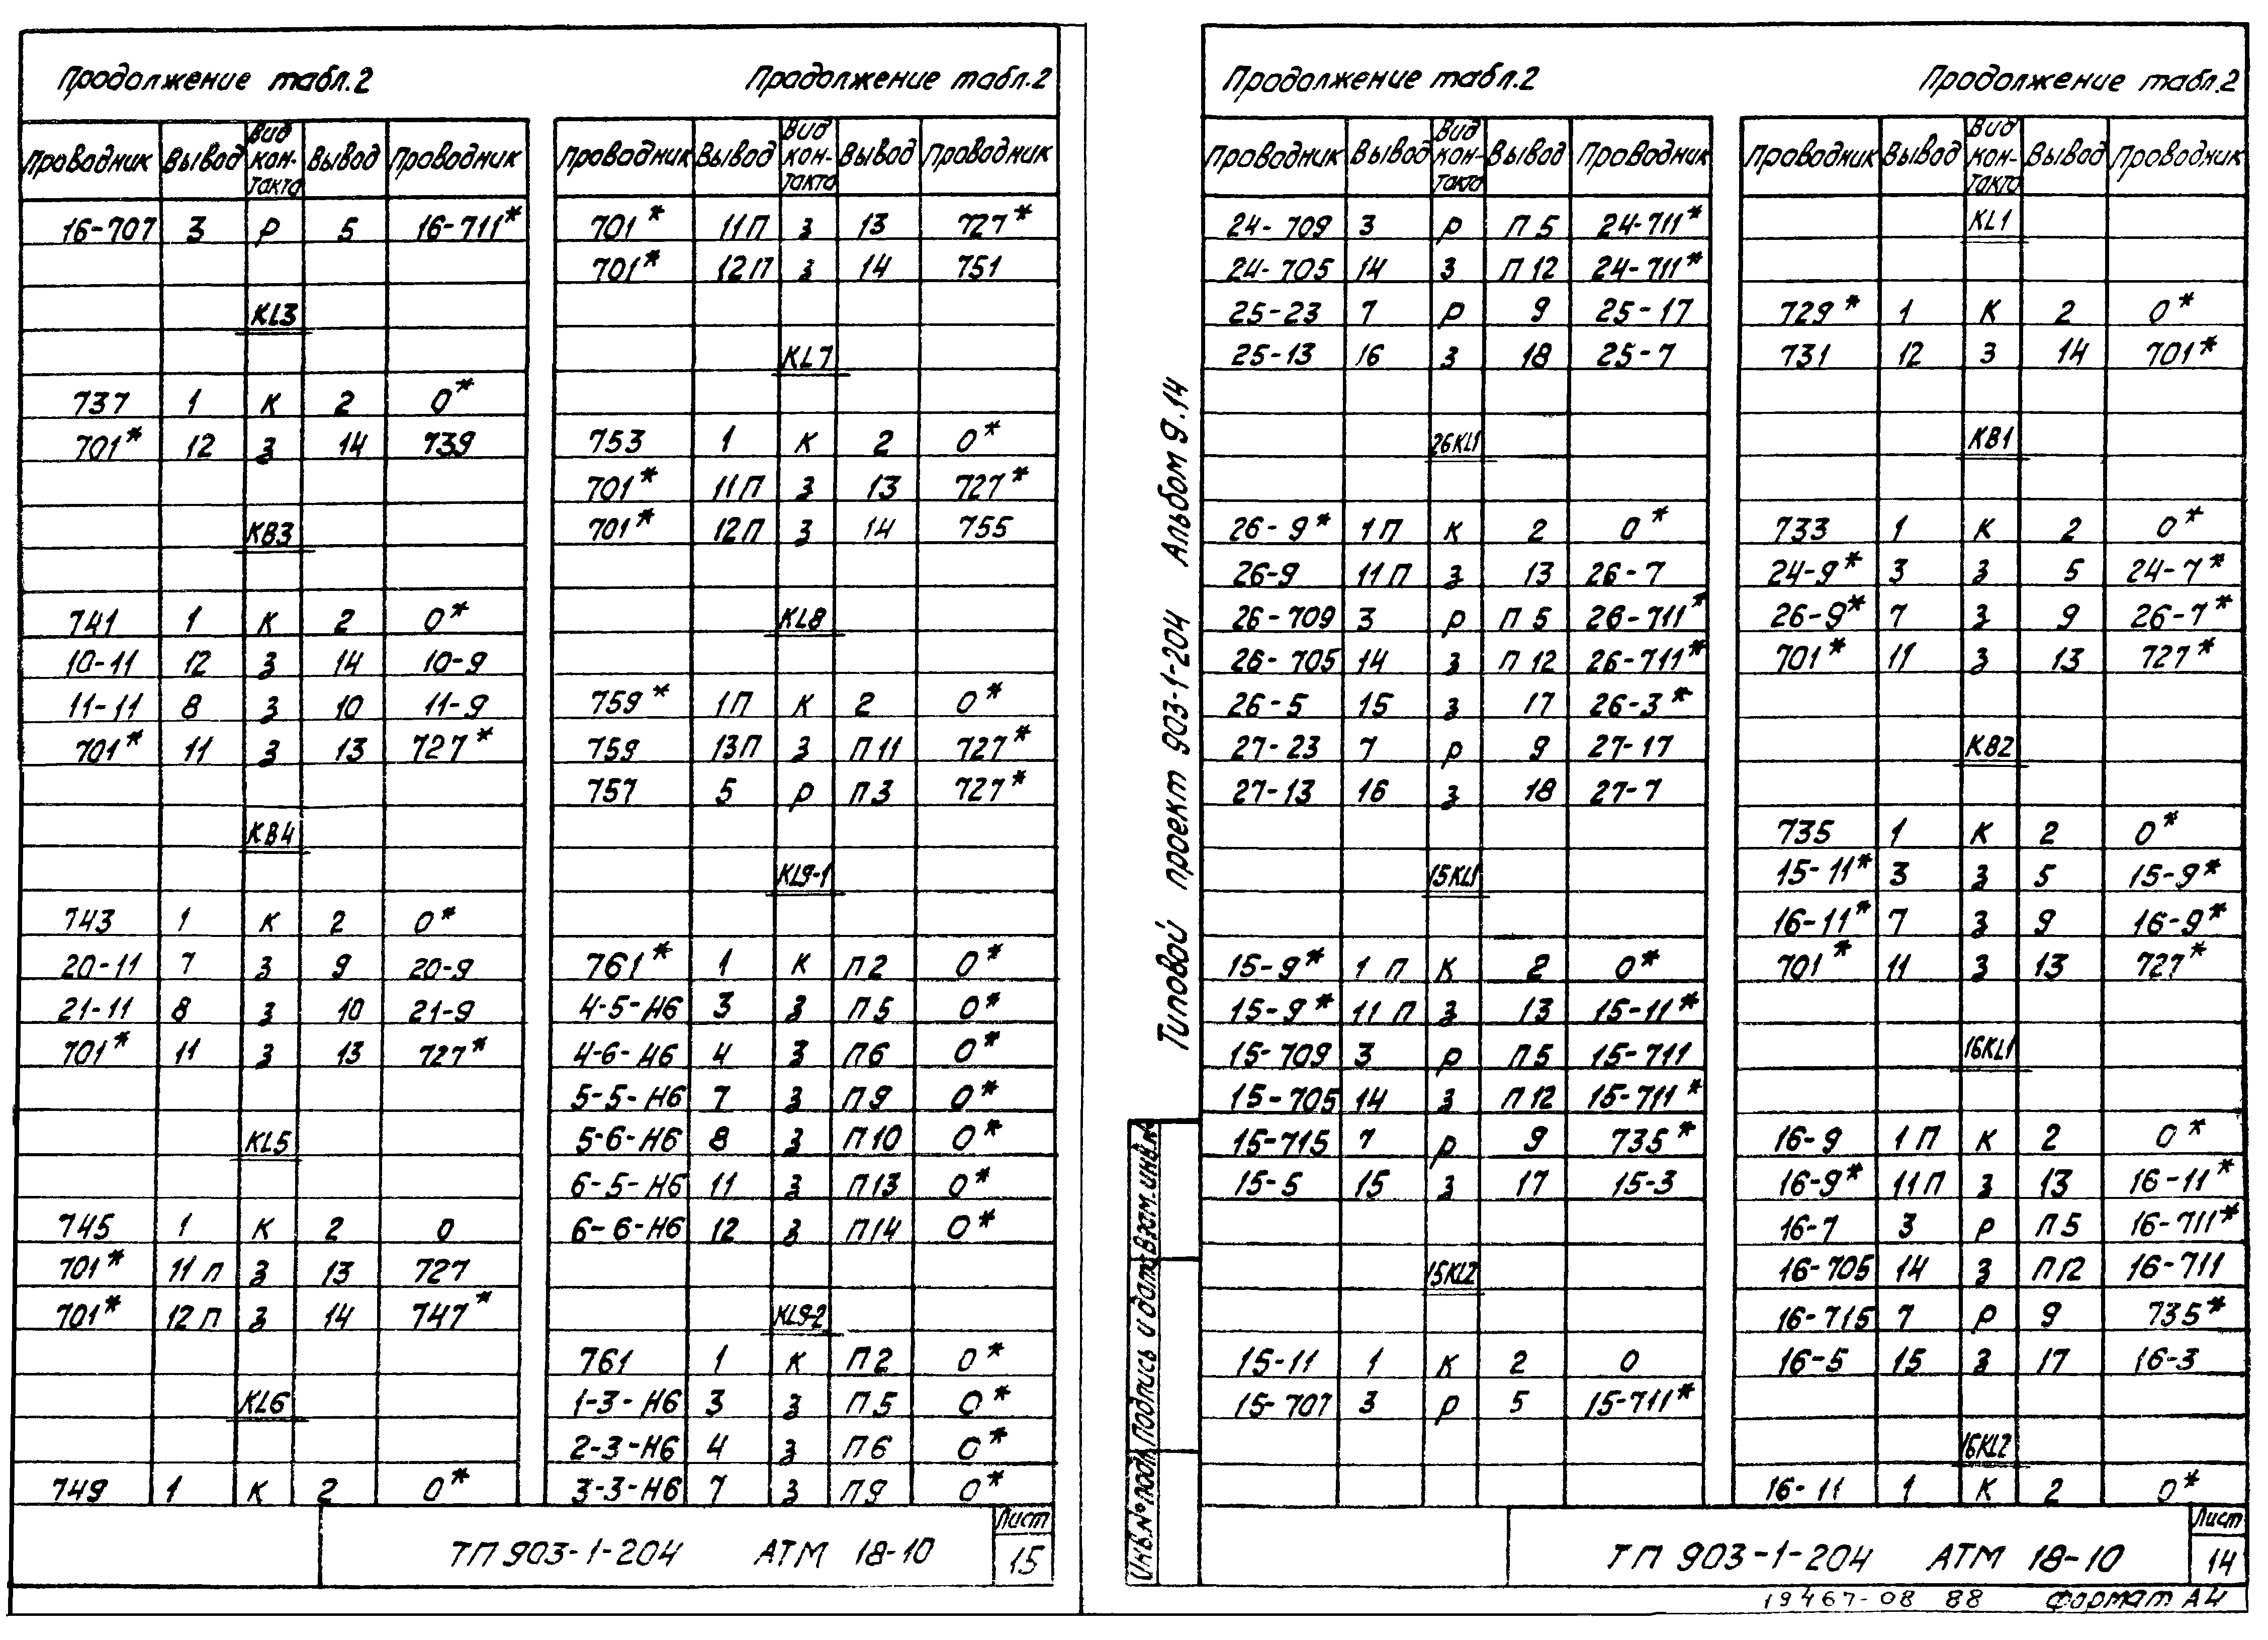 Продолжение табл.2
Проводник Вывод Вид контакта Вывод Проводник
16-707 3 р 5 16-711*
KL3
737 1 к 2 0*
701* 12 з 14 739
КВ3
741 1 к 2 0*
10-11 12 з 14 10-9
11-11 8 з 10 11-9
701* 11 з 13 727*
КВ4
743 1 к 2 0*
20-11 7 з 9 20-9
21-11 8 з 10 21-9
701* 11 з 13 727*
KL5
745 1 к 2 0
701* 11П з 13 727
701* 12П з 14 747*
KL6
749 1 к 2 0*
Продолжение табл.2
Проводник Вывод Вид контакта Вывод Проводник
701* 11П з 13 727*
701* 12П з 14 751
KL7
753 1 к 2 0*
701* 11П з 13 727*
701* 12П з 14 755
KL8
759* 1П к 2 0*
759 13П з П11 727*
757 5 р П3 727*
KL9-1
761* 1 к П2 0*
4-5-Н6 3 з П5 0*
4-6-Н6 4 з П6 0*
5-5-Н6 7 з П9 0*
5-6-Н6 8 з П10 0*
6-5-Н6 11 з П13 0*
6-6-Н6 12 з П14 0*
KL9-2
761 1 к П2 0*
1-3-Н6 3 з П5 0*
2-3-Н6 4 з П6 0*
3-3-Н6 7 з П9 0*
ТП 903-1-204 АТМ 18-10
Лист
15
Типовой проект 903-1-204 Альбом 9.14
Инв.№ подл. Подпись и дата Взам.инв.№
Продолжение табл.2
Проводник Вывод Вид контакта Вывод Проводник
24-709 3 р П5 24-711*
24-705 14 з П12 24-711*
25-23 7 р 9 25-17
25-13 16 з 18 25-7
26KL1
26-9* 1П к 2 0*
26-9 11П з 13 26-7
26-709 3 р П5 26-711*
26-705 14 з П12 26-711*
26-5 15 з 17 26-3*
27-23 7 р 9 27-17
27-13 16 з 18 27-7
15KL1
15-9* 1П к 2 0*
15-9* 11П з 13 15-11*
15-709 3 р П5 15-711
15-705 14 з П12 15-711*
15-715 7 р 9 735*
15-5 15 з 17 15-3
15KL2
15-11 1 к 2 0
15-707 3 р 5 15-711*
Продолжение табл.2
Проводник Вывод Вид контакта Вывод Проводник
KL1
729* 1 к 2 0*
731 12 з 14 701*
КВ1
733 1 к 2 0*
24-9* 3 з 5 24-7*
26-9* 7 з 9 26-7*
701* 11 з 13 727*
КВ2
735 1 к 2 0*
15-11* 3 з 5 15-9*
16-11* 7 з 9 16-9*
701* 11 з 13 727*
16KL1
16-9 1П к 2 0*
16-9* 11П з 13 16-11*
16-7 3 р П5 16-711*
16-705 14 з П12 16-711
16-715 7 р 9 735*
16-5 15 з 17 16-3
16KL2
16-11 1 к 2 0*
ТП 903-1-204 АТМ 18-10
Лист
14
19467-08 88 Формат А4